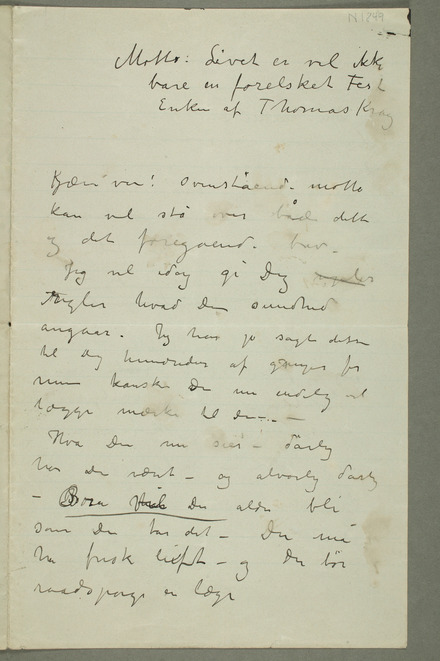 N 1849
Motto: Livet er vel ikke
bare en forelsket Fest
Enken af Thomas Krag
Kjære ven! Ovenstående motto
kan vel stå over både dette
og det foregående brev.
Jeg vil idag gi Dig
Regler hvad Din sundhed
angaar. Jeg har jo sagt dette
til Dig hundreder af ganger før
men kanske Du nu endelig vil
lægge mærke til det.. –
Hva Du nu sier – dårlig
har du været – og alvorlig dårlig
– Bra Du aldri bli
som Du har det – Du må
ha frisk luft – og Du bør
raadspørge en læge